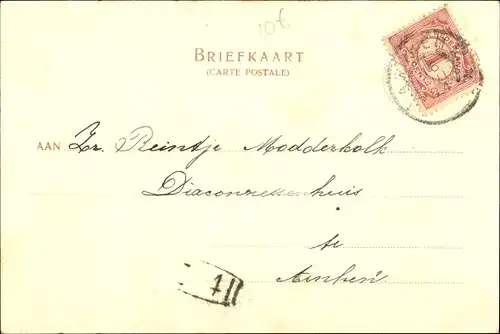 10€
BRIEFKAART
(CARTE POSTALE)
AAN Zr. Reintje Modderkolk
Diaconessenhuis
te
Arnhem